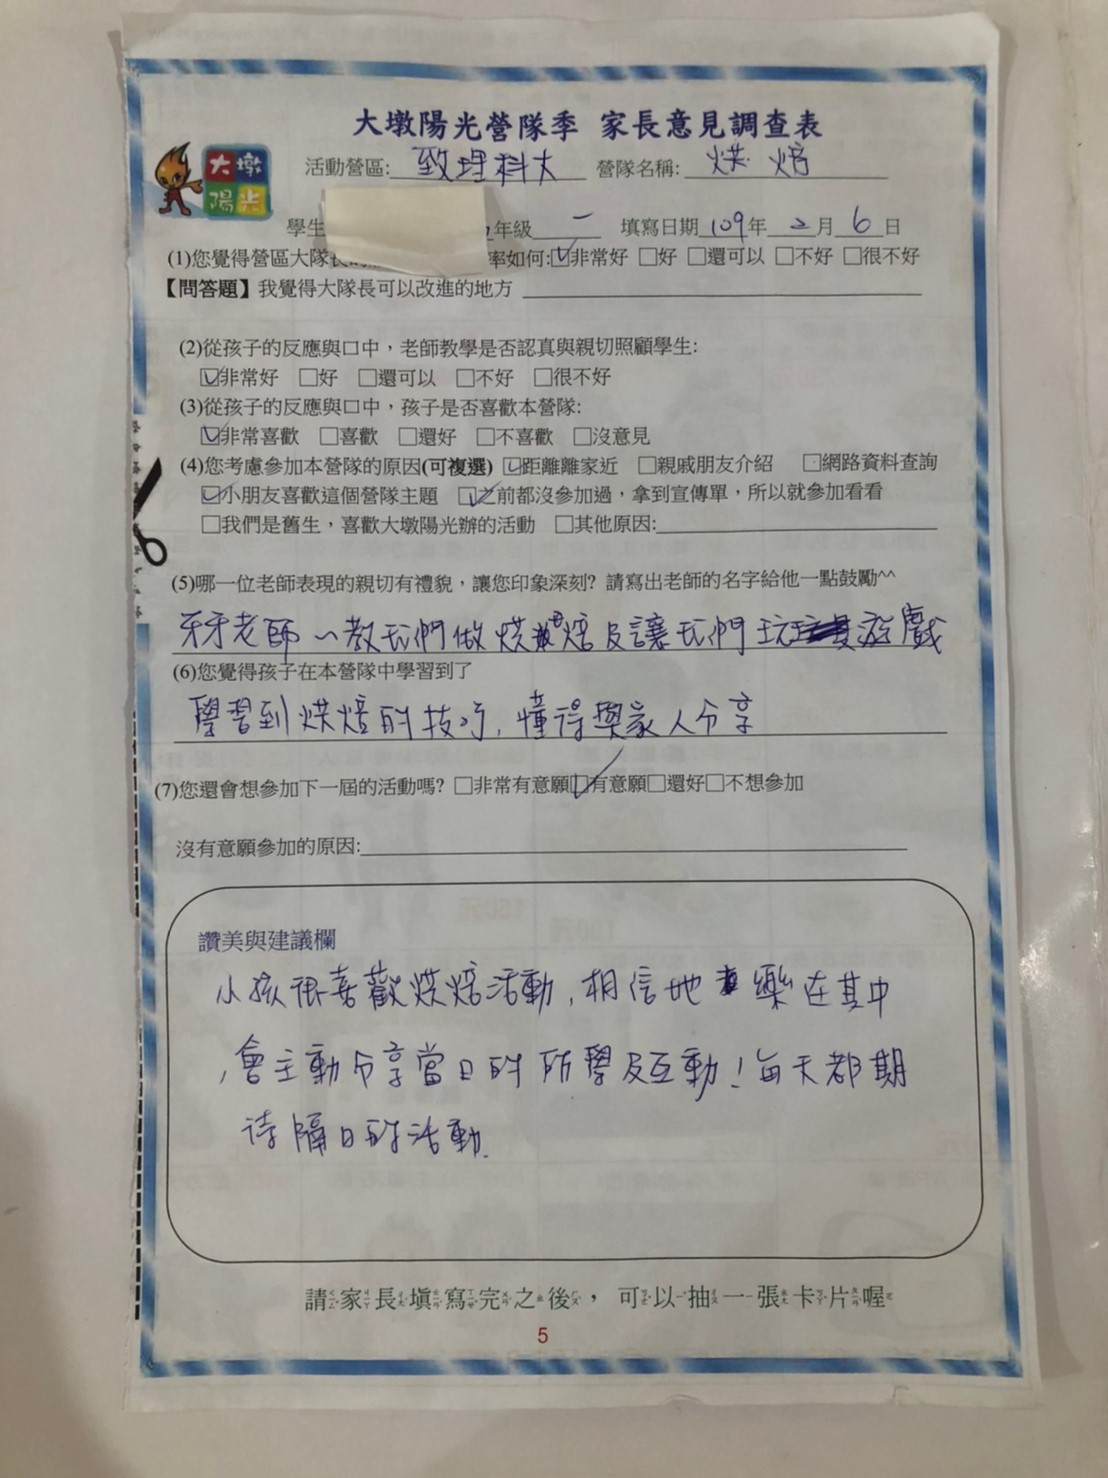 大墩陽光營隊季 家長意見調查表
大墩
陽光
活動營區: 致理科大 營隊名稱: 烘焙
學生 年級 一 填寫日期 109年 2月 6日
(1)您覺得營區大隊長的 率如何:☑非常好 □好 □還可以 □不好 □很不好
【問答題】我覺得大隊長可以改進的地方
(2)從孩子的反應與口中，老師教學是否認真與親切照顧學生:
☑非常好 □好 □還可以 □不好 □很不好
(3)從孩子的反應與口中，孩子是否喜歡本營隊:
☑非常喜歡 □喜歡 □還好 □不喜歡 □沒意見
(4)您考慮參加本營隊的原因(可複選) ☑距離離家近 □親戚朋友介紹 □網路資料查詢
☑小朋友喜歡這個營隊主題 ☑之前都沒參加過，拿到宣傳單，所以就參加看看
□我們是舊生，喜歡大墩陽光辦的活動 □其他原因:
(5)哪一位老師表現的親切有禮貌，讓您印象深刻? 請寫出老師的名字給他一點鼓勵^^
牙牙老師~教我們做烘焙及讓我們玩遊戲
(6)您覺得孩子在本營隊中學習到了
學習到烘焙的技巧, 懂得與家人分享
(7)您還會想參加下一屆的活動嗎? □非常有意願☑有意願□還好□不想參加
沒有意願參加的原因:
讚美與建議欄
小孩很喜歡烘焙活動, 相信她樂在其中
, 會主動分享當日的所學及互動! 每天都期
待隔日的活動.
請家長填寫完之後，可以抽一張卡片喔
5